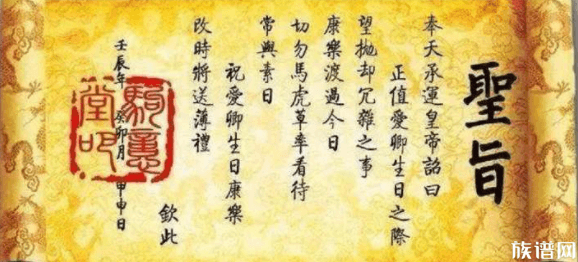 聖旨
奉天承運皇帝詔曰
正值愛卿生日之際
望拋却冗雜之事
康樂渡過今日
切勿馬虎草率看待
常與素日
祝愛卿生日康樂
改時將送薄禮
欽此
壬辰年 癸卯月 甲申日
堂印
族谱网